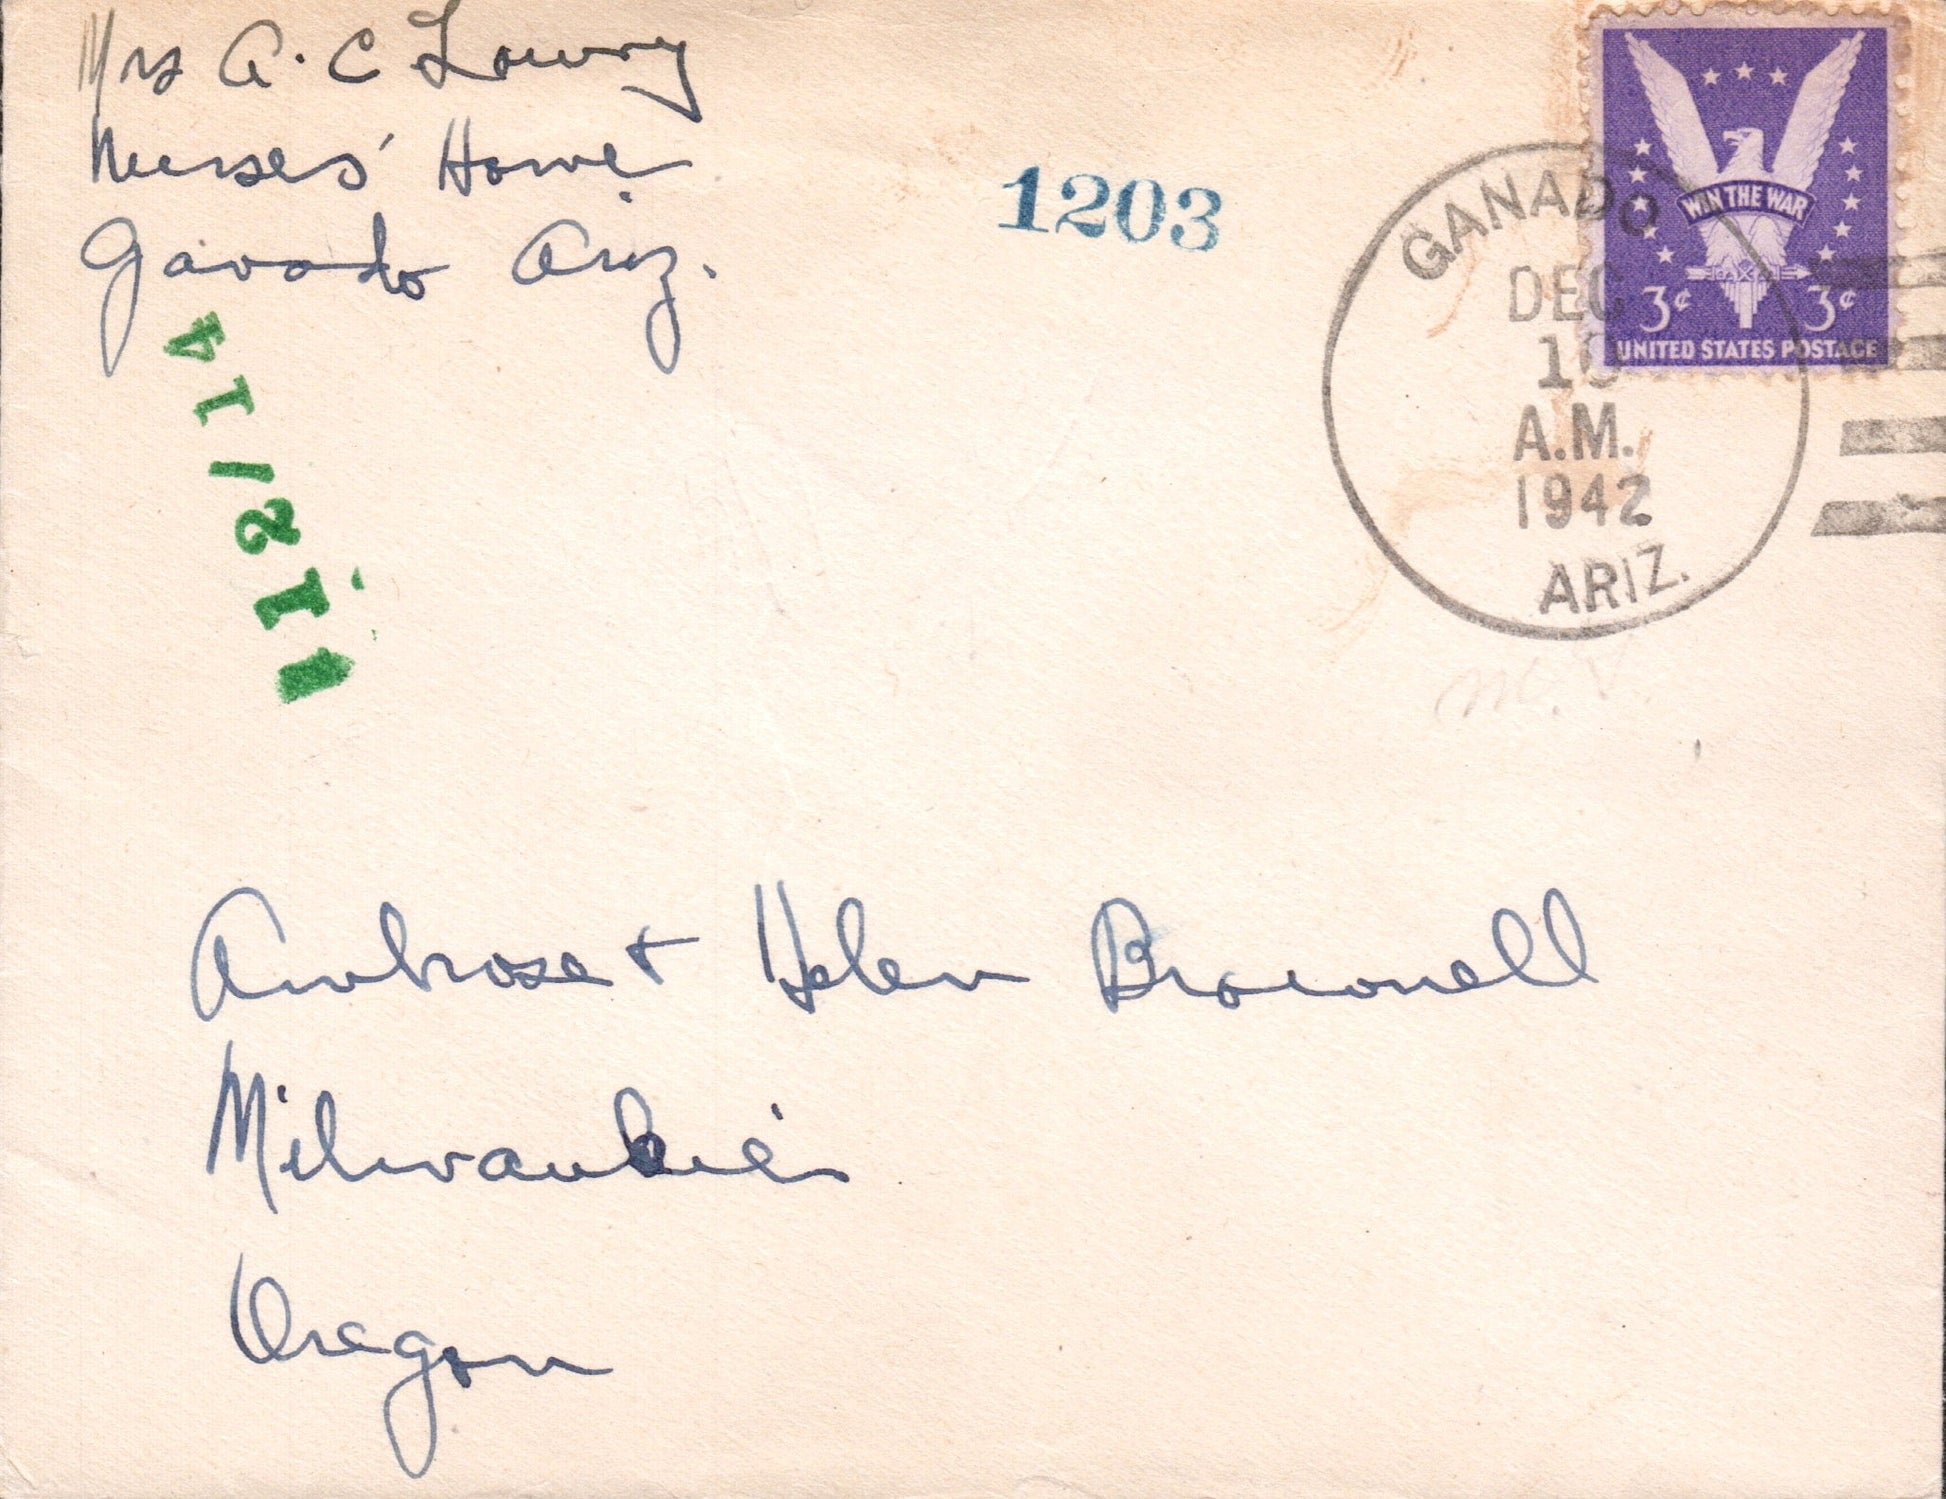 Mrs A. C Lowry
Nurses' Home
Ganado Ariz.
1203
WIN THE WAR
3¢ 3¢
UNITED STATES POSTAGE
GANADO
DEC
A.M.
1942
ARIZ.
Ambrose & Helen Brownell
Milwaukie
Oregon